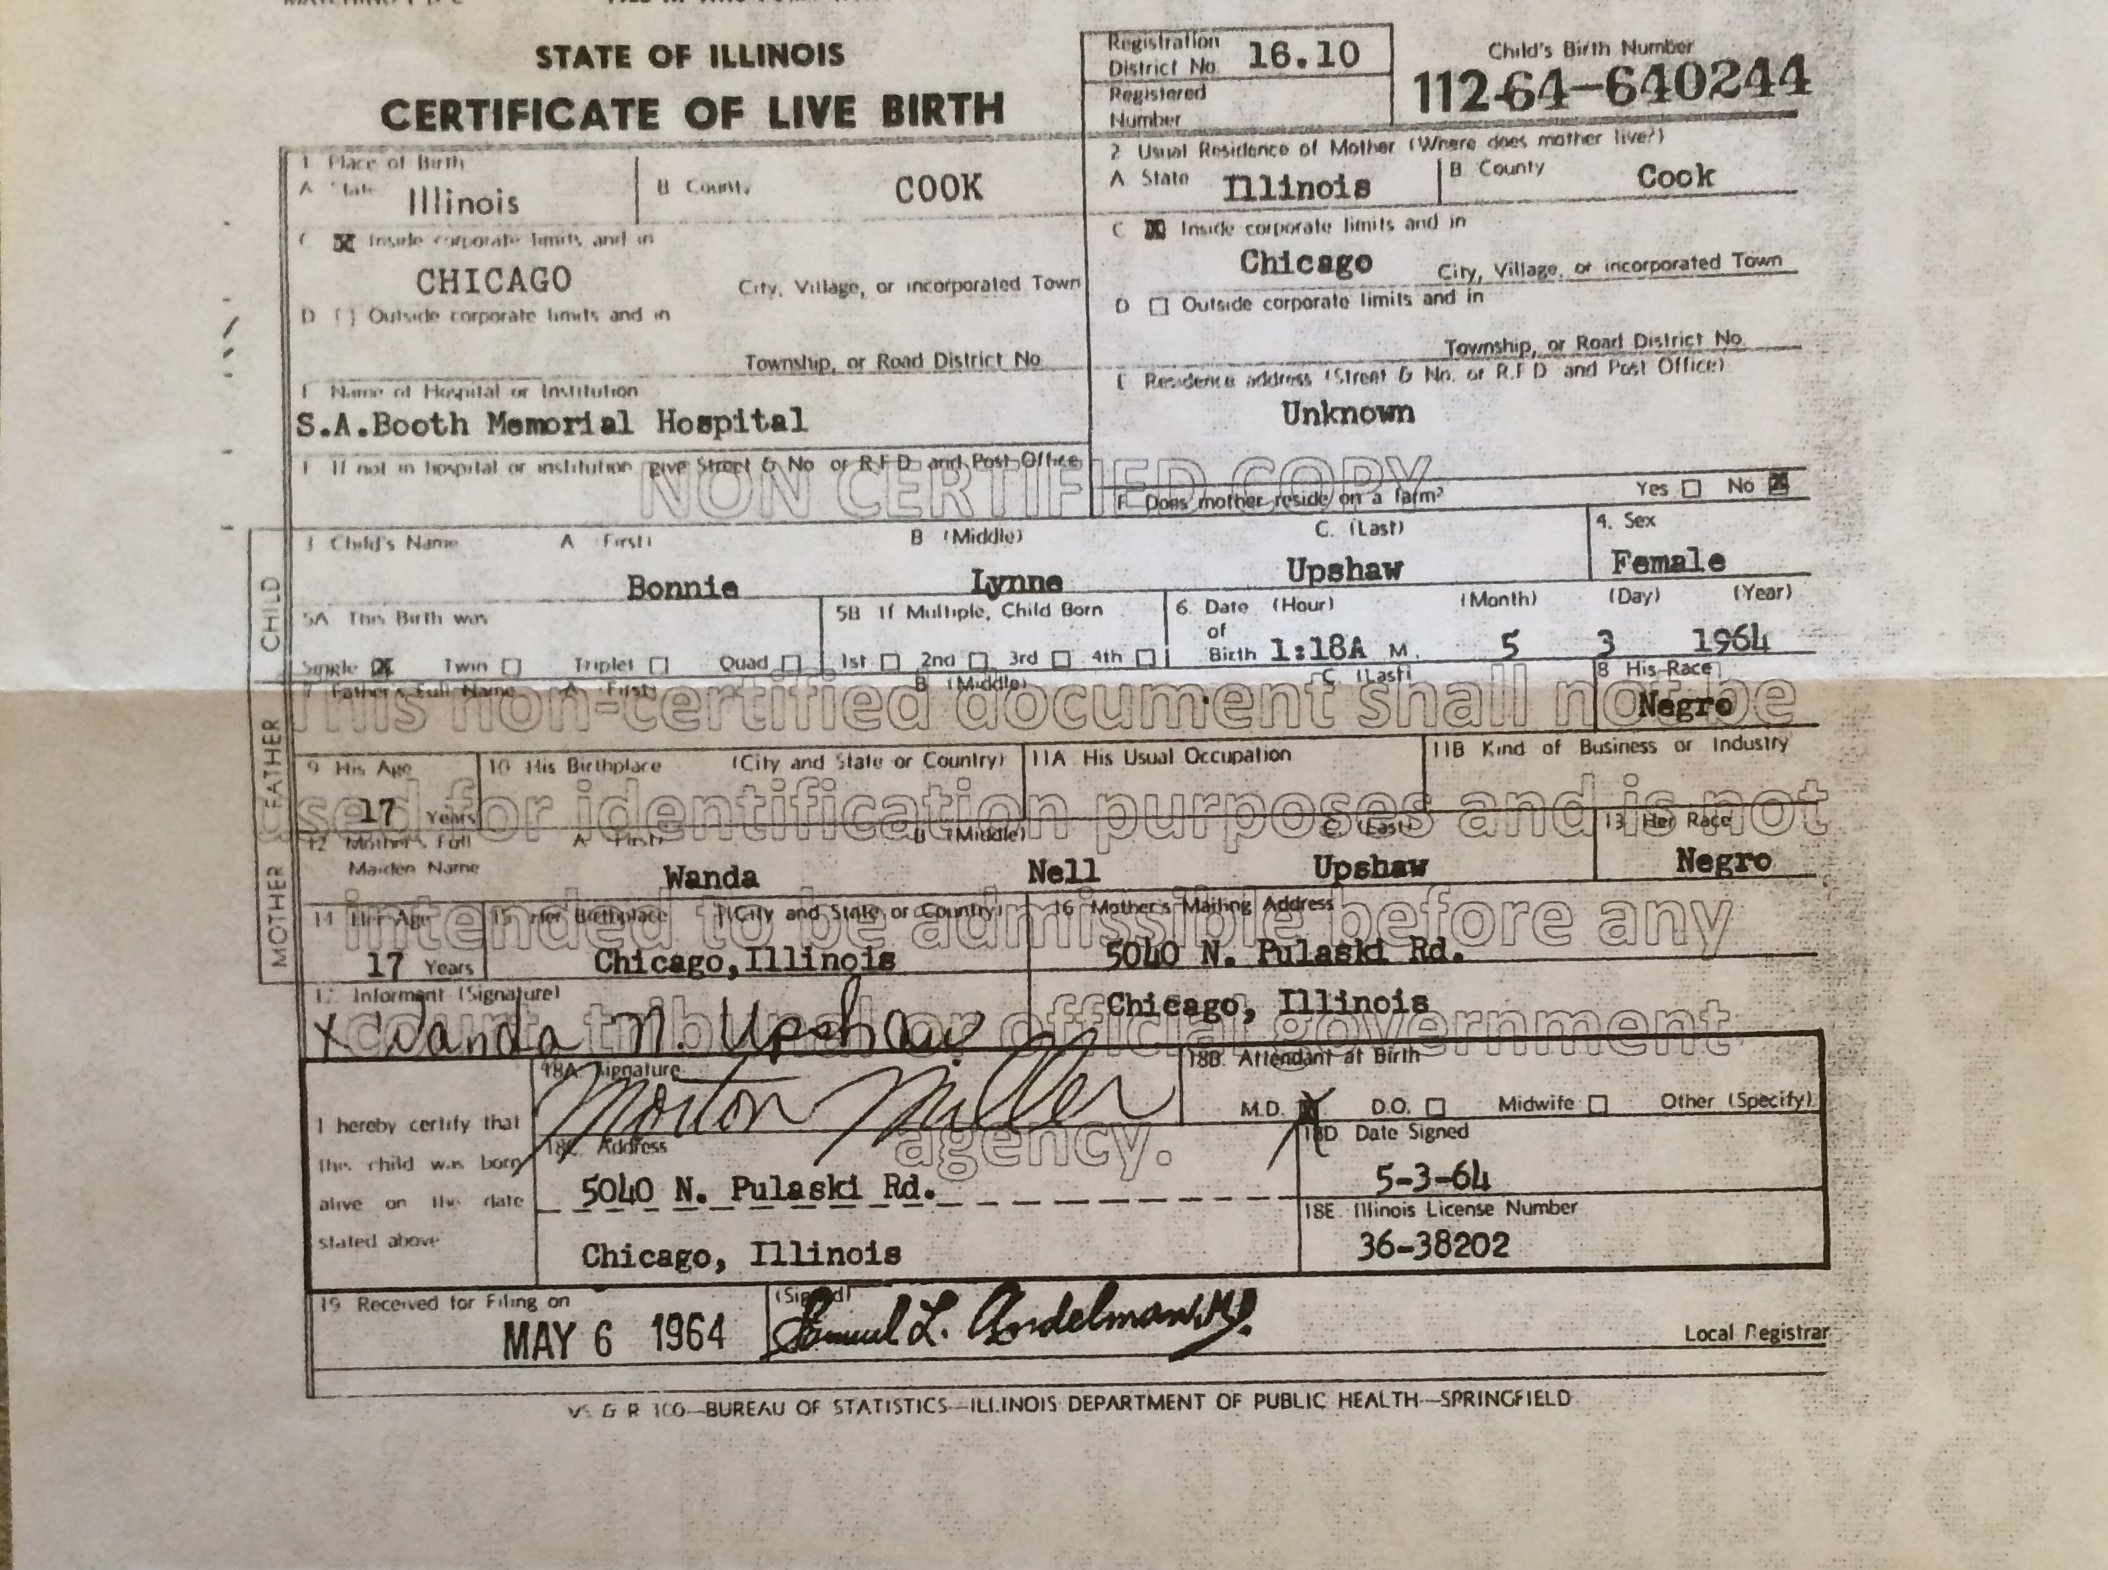 STATE OF ILLINOIS
CERTIFICATE OF LIVE BIRTH
Registration District No. 16.10
Registered Number
Child's Birth Number
112-64-640244
1 Place of Birth
A State Illinois
B County COOK
C Inside corporate limits and in
CHICAGO
City, Village, or incorporated Town
D Outside corporate limits and in
Township, or Road District No.
E Name of Hospital or Institution
S.A.Booth Memorial Hospital
F If not in hospital or institution give Street & No or R.F.D. and Post Office
2 Usual Residence of Mother (Where does mother live?)
A State Illinois
B. County Cook
C Inside corporate limits and in
Chicago
City, Village, or incorporated Town
D Outside corporate limits and in
Township, or Road District No.
E Residence address (Street & No. or R.F.D. and Post Office)
Unknown
F. Does mother reside on a farm? Yes No
NON CERTIFIED COPY
CHILD
3 Child's Name A (First) B (Middle) C. (Last)
Bonnie Lynne Upshaw
4. Sex
Female
5A This Birth was
Single Twin Triplet Quad
5B If Multiple, Child Born
1st 2nd 3rd 4th
6. Date of Birth (Hour) (Month) (Day) (Year)
1:18A M. 5 3 1964
FATHER
7 Father's Full Name A (First) B (Middle) C. (Last)
8 His Race
Negro
This non-certified document shall not be
9 His Age
17 Years
10 His Birthplace (City and State or Country)
11A His Usual Occupation
11B Kind of Business or Industry
used for identification purposes and is not
MOTHER
12 Mother's Full Maiden Name A (First) B (Middle) C. (Last)
Wanda Nell Upshaw
13 Her Race
Negro
14 Her Age
17 Years
15 Her Birthplace (City and State or Country)
Chicago,Illinois
16 Mother's Mailing Address
5040 N. Pulaski Rd.
Chicago, Illinois
intended to be admissible before any
17 Informant (Signature)
x Wanda N. Upshaw
court tribunal or official government
agency.
I hereby certify that
this child was born
alive on the date
stated above
18A. Signature
Morton Miller
18B. Attendant at Birth
M.D. D.O. Midwife Other (Specify)
18C Address
5040 N. Pulaski Rd.
Chicago, Illinois
18D Date Signed
5-3-64
18E. Illinois License Number
36-38202
19 Received for Filing on
MAY 6 1964
(Signed)
Samuel L. Andelman, M.D.
Local Registrar
VS & R 100—BUREAU OF STATISTICS—ILLINOIS DEPARTMENT OF PUBLIC HEALTH—SPRINGFIELD